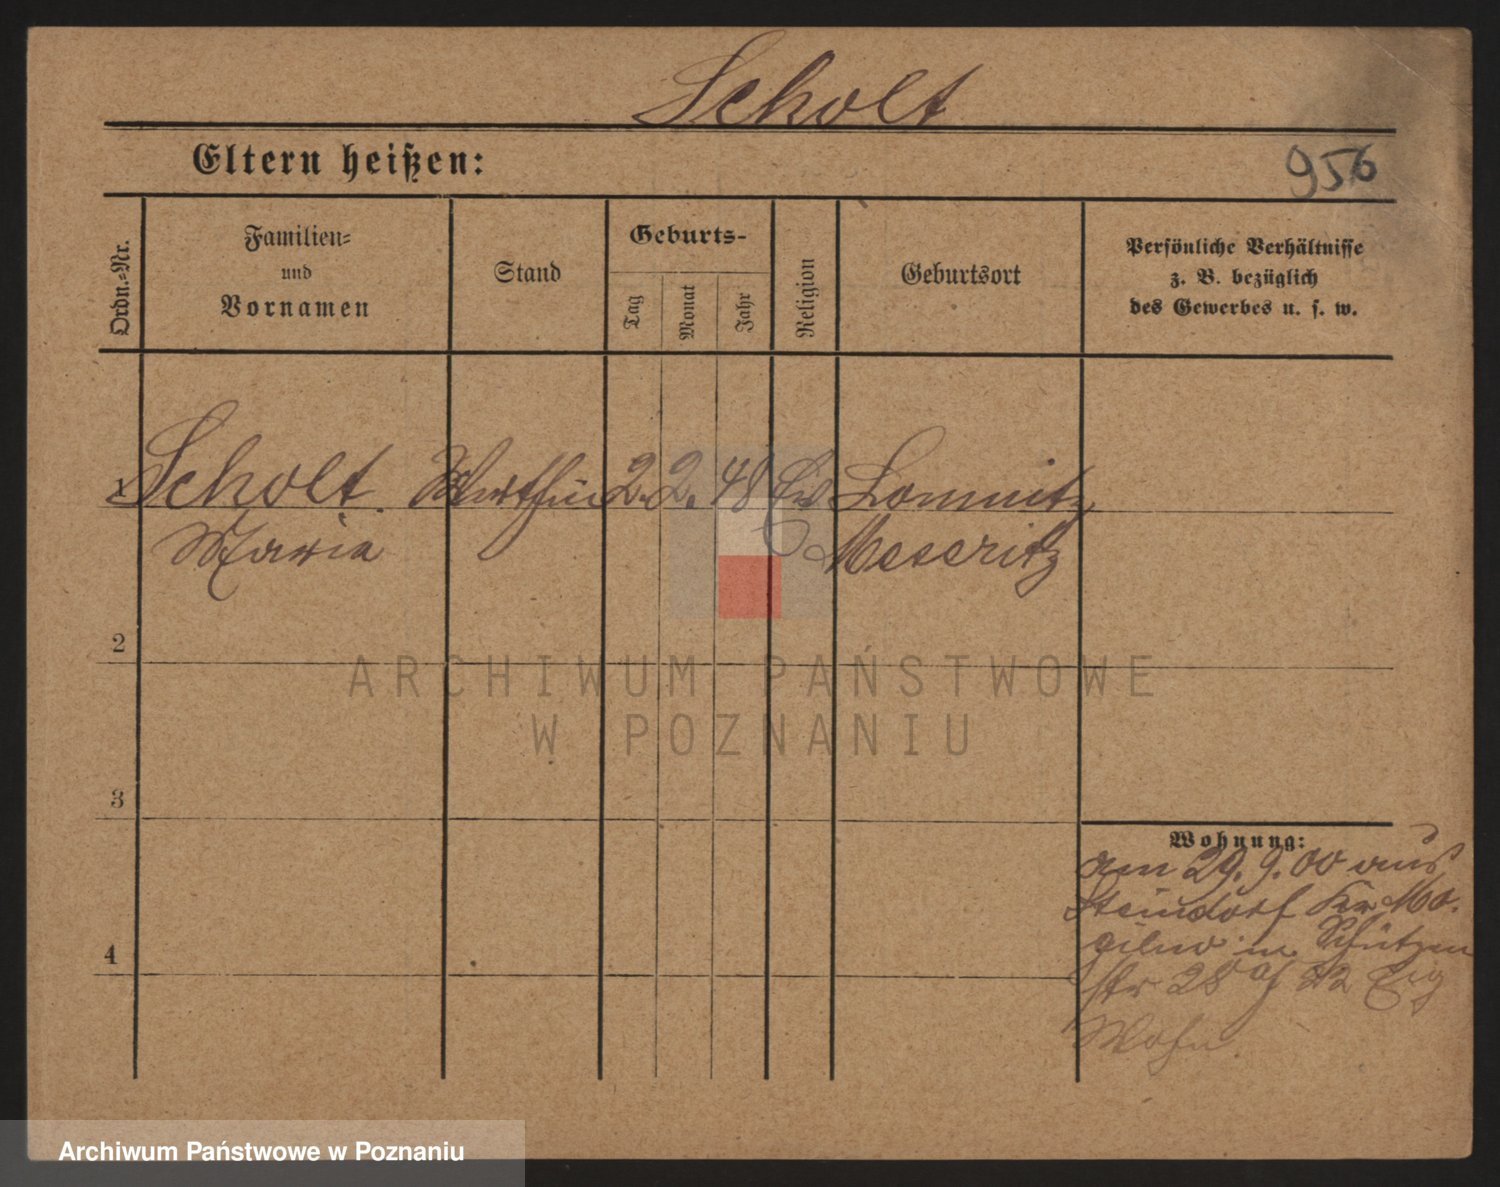 Scholt
Eltern heißen:
956
Ordn.-Nr.
Familien-
und
Vornamen
Stand
Geburts-
Tag
Monat
Jahr
Religion
Geburtsort
Persönliche Verhältnisse
z. B. bezüglich
des Gewerbes u. s. w.
1 Scholt. 2. 2. 48 Ev Lomnitz
Marie Meseritz
2
3
4
Wohnung:
am 29.9.00 aus
Steindorf Kr Mo.
gilno in Schützen
str 28 22 Eig
Wohn.
ARCHIWUM PAŃSTWOWE
W POZNANIU
Archiwum Państwowe w Poznaniu